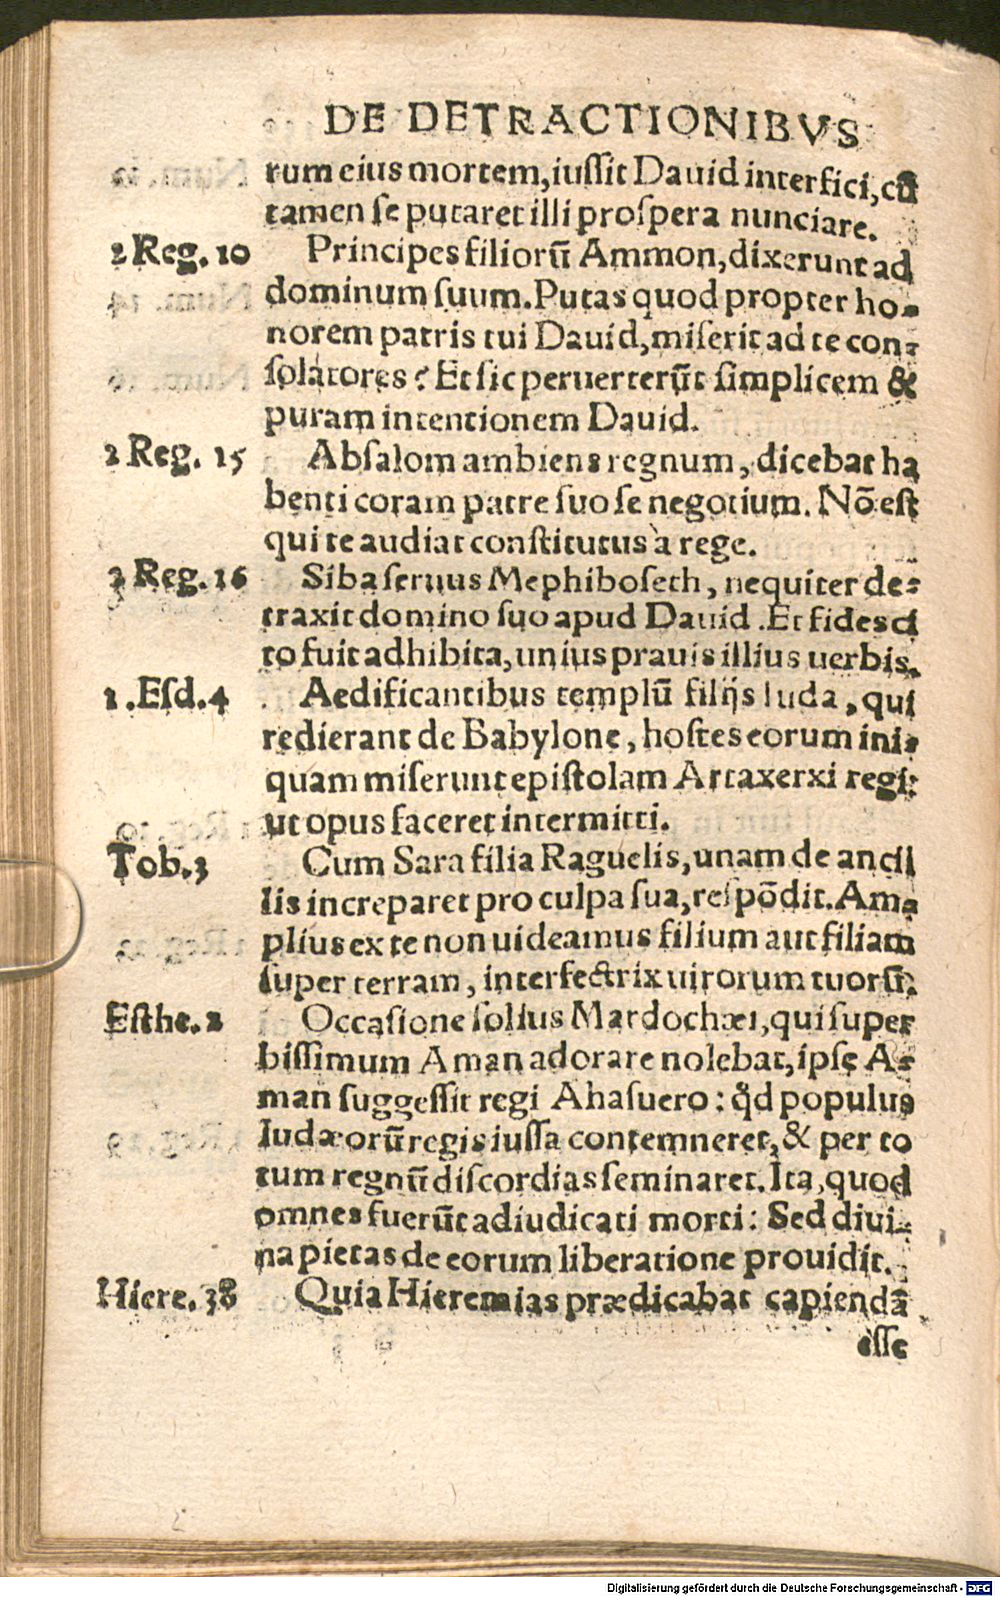 DE DETRACTIONIBVS
rum eius mortem, iuſſit Dauid interfici, cũ
tamen ſe putaret illi proſpera nunciare.
2 Reg. 10 Principes filiorũ Ammon, dixerunt ad
dominum ſuum. Putas quod propter ho-
norem patris tui Dauid, miſerit ad te con-
ſolatores? Et ſic peruerterũt ſimplicem &
puram intentionem Dauid.
2 Reg. 15 Abſalom ambiens regnum, dicebat ha
benti coram patre ſuo ſe negotium. Nõ eſt
qui te audiat conſtitutus à rege.
2 Reg. 16 Siba ſeruus Mephiboſeth, nequiter de-
traxit domino ſuo apud Dauid. Et fides ci
to fuit adhibita, unius prauis illius uerbis.
1. Eſd. 4 Aedificantibus templũ filijs Iuda, qui
redierant de Babylone, hoſtes eorum ini-
quam miſerunt epiſtolam Artaxerxi regi:
ut opus faceret intermitti.
Tob. 3 Cum Sara filia Raguelis, unam de ancil
lis increparet pro culpa ſua, reſpõdit. Am-
plius ex te non uideamus filium aut filiam
ſuper terram, interfectrix uirorum tuorũ.
Eſthe. 2 Occaſione ſolius Mardochæi, qui ſuper
biſſimum Aman adorare nolebat, ipſe A-
man ſuggeſſit regi Ahaſuero: qd populus
Iudæorũ regis iuſſa contemneret, & per to
tum regnũ diſcordias ſeminaret. Ita, quod
omnes fuerũt adiudicati morti: Sed diui-
na pietas de eorum liberatione prouidit.
Hiere. 38 Quia Hieremias prædicabat capiendã
eſſe
Digitalisierung gefördert durch die Deutsche Forschungsgemeinschaft - DFG